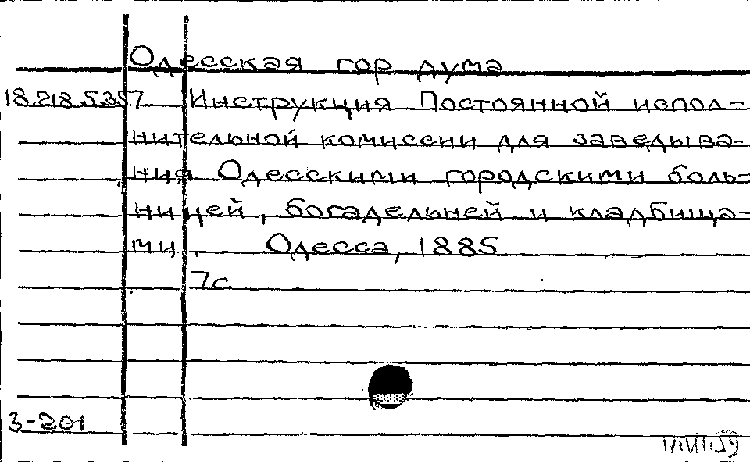 Одесская гор дума
18.218.5.357 Инструкция Постоянной испол-
нительной комиссии для заведыва-
ния Одесскими городскими боль-
ницей, богадельней и кладбища-
ми. Одесса, 1885
7с
3-201